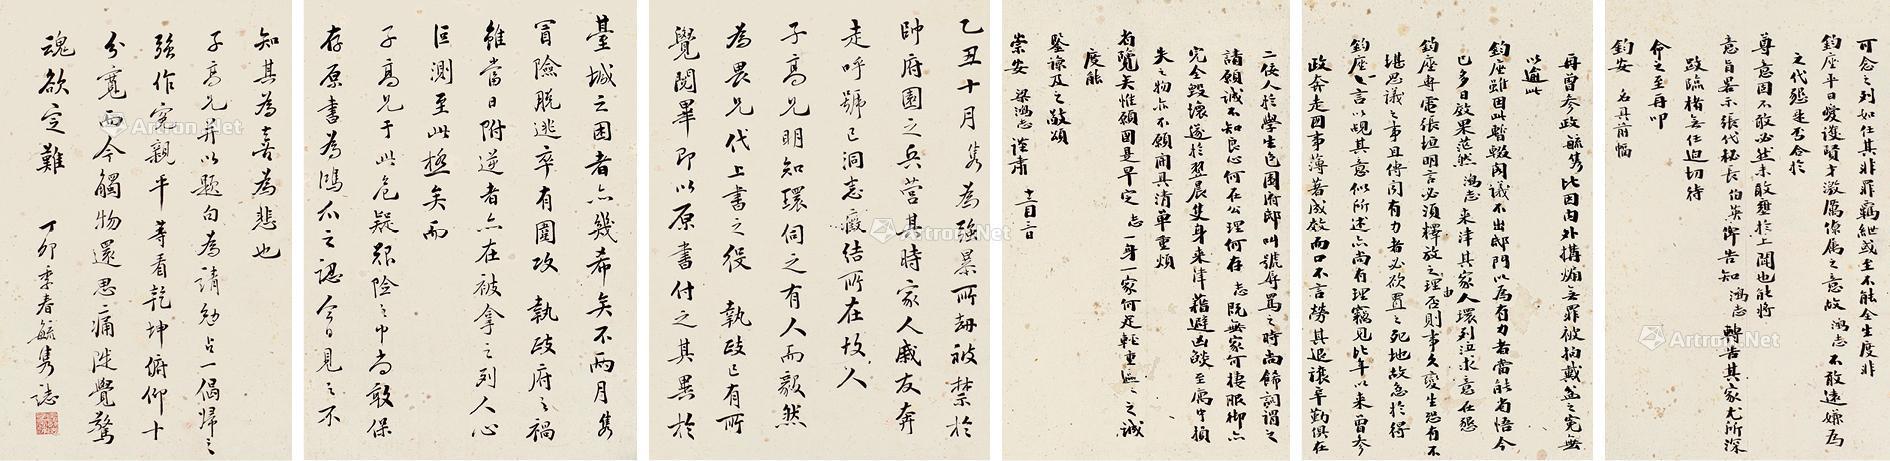 可念之列如任其非罪羈絏或至不能全生度非
鈞座平日愛護賢才激厲僚属之意故鴻志不敢遠嫌為
之代懇是否合於
尊意固不敢必然未敢壅於上聞也能將
意旨畧示張代秘長伯英俾告知鴻志轉告其家尤所深
感臨楮無任迫切待
命之至再叩
鈞安 名具前幅
再曾參政毓雋比因内外搆煽無罪被拘戴盆之冤無
以逾此
鈞座雖因此暫輟閣議不出邸門以為有力者當能省悟今
已多日效果茫然鴻志来津其家人環列泣求意在懇
鈞座專電張垣明言必須釋放之理由否則事久變生恐有不
堪思議之事且傳聞有力者必欲置之死地故急於得
鈞座一言以覘其意似所述亦尚有理竊見比年以来曾參
政奔走國事薄著成效而口不言勞其退讓辛勤俱在
二佞人於學生包圍府邸叫號辱罵之時尚飾詞謂之
請願誠不知良心何在公理何存志既無家可棲眠御亦
完全毀壞遂於翌晨隻身来津藉避凶燄至寓中損
失之物亦不願開具清單重煩
省覽矣惟願國是早定志一身一家何足輕重區區之誠
度能
鑒諒及之敬頌
崇安 梁鴻志謹肅 十二月二日
乙丑十月雋為強暴所劫被禁於
帥府園之兵營其時家人戚友奔
走呼號已洞志癥結所在故人
子高兄明知環伺之有人而毅然
為畏兄代上書之役 執政已有所
覺閱畢即以原書付之其異於
臺城之困者亦幾希矣不兩月雋
冒險脱逃卒有圍攻 執政府之禍
雖當日附逆者亦在被拿之列人心
叵測至此極矣而
子高兄于此危疑艱險之中尚敢保
存原書為鴻爪之認今日見之不
知其為喜為悲也
子高兄并以題句為請勉占一偈歸之
強作冤親平等看乾坤俯仰十
分寬而今觸物還思痛陡覺驚
魂欲定難 丁卯季春毓雋誌
Artron.Net
Artron.Net
Artron.Net